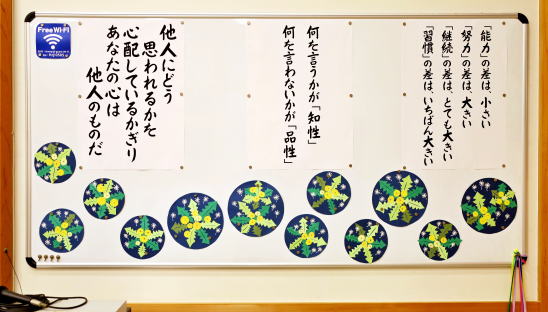 「能力」の差は、小さい
「努力」の差は、大きい
「継続」の差は、とても大きい
「習慣」の差は、いちばん大きい
何を言うかが「知性」
何を言わないかが「品性」
他人にどう
思われるかを
心配しているかぎり
あなたの心は
他人のものだ
Free Wi-Fi